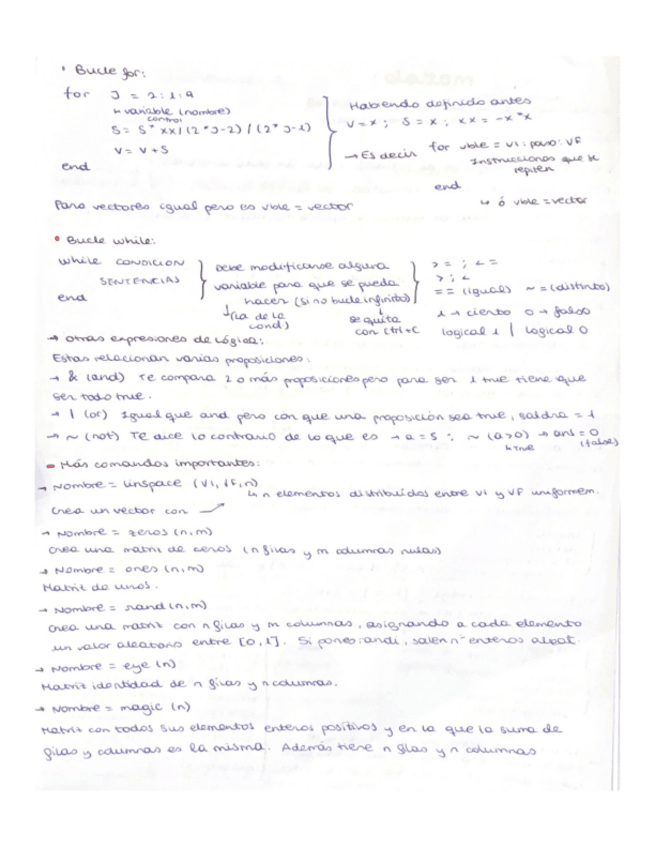 • Bucle for:
for J = 2:1:9
↳ variable (nombre)
control
S = S * xx/(2*J-2)/(2*J-1)
V = V + S
end
Habiendo definido antes
V = x ; S = x ; xx = -x*x
→ Es decir for vble = vi : paso : VF
Instrucciones que se
repiten
end
↳ ó vble = vector
Para vectores igual pero es vble = vector
• Bucle while:
while CONDICION
SENTENCIAS
end
Debe modificarse alguna
variable para que se pueda
hacer (si no bucle infinito)
↳ (la de la
cond)
se quita
con Ctrl+C
> = ; < =
> ; <
== (igual) ~ = (distinto)
1 → cierto 0 → falso
logical 1 | logical 0
→ Otras expresiones de Lógica:
Estas relacionan varias proposiciones:
→ & (and) Te compara 2 o más proposiciones pero para ser 1 true tiene que
ser todo true.
→ | (or) Igual que and pero con que una proposición sea true, saldrá = 1
→ ~ (not) Te dice lo contrario de lo que es → a = 5 ; ~ (a>0) → ans = 0
↳ true (false)
Más comandos importantes:
→ Nombre = linspace (VI, VF, n)
↳ n elementos distribuidos entre VI y VF uniformem.
Crea un vector con
→ Nombre = zeros (n,m)
Crea una matriz de ceros (n filas y m columnas nulas)
→ Nombre = ones (n,m)
Matriz de unos.
→ Nombre = rand (n,m)
Crea una matriz con n filas y m columnas, asignando a cada elemento
un valor aleatorio entre [0,1]. Si pones randi, salen nº enteros aleat.
→ Nombre = eye (n)
Matriz identidad de n filas y n columnas.
→ Nombre = magic (n)
Matriz con todos sus elementos enteros positivos y en la que la suma de
filas y columnas es la misma. Además tiene n filas y n columnas